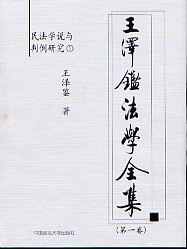 王澤鑑法學全集
(第一卷)
民法学说与
判例研究①
王泽鉴 著
中国政法大学出版社